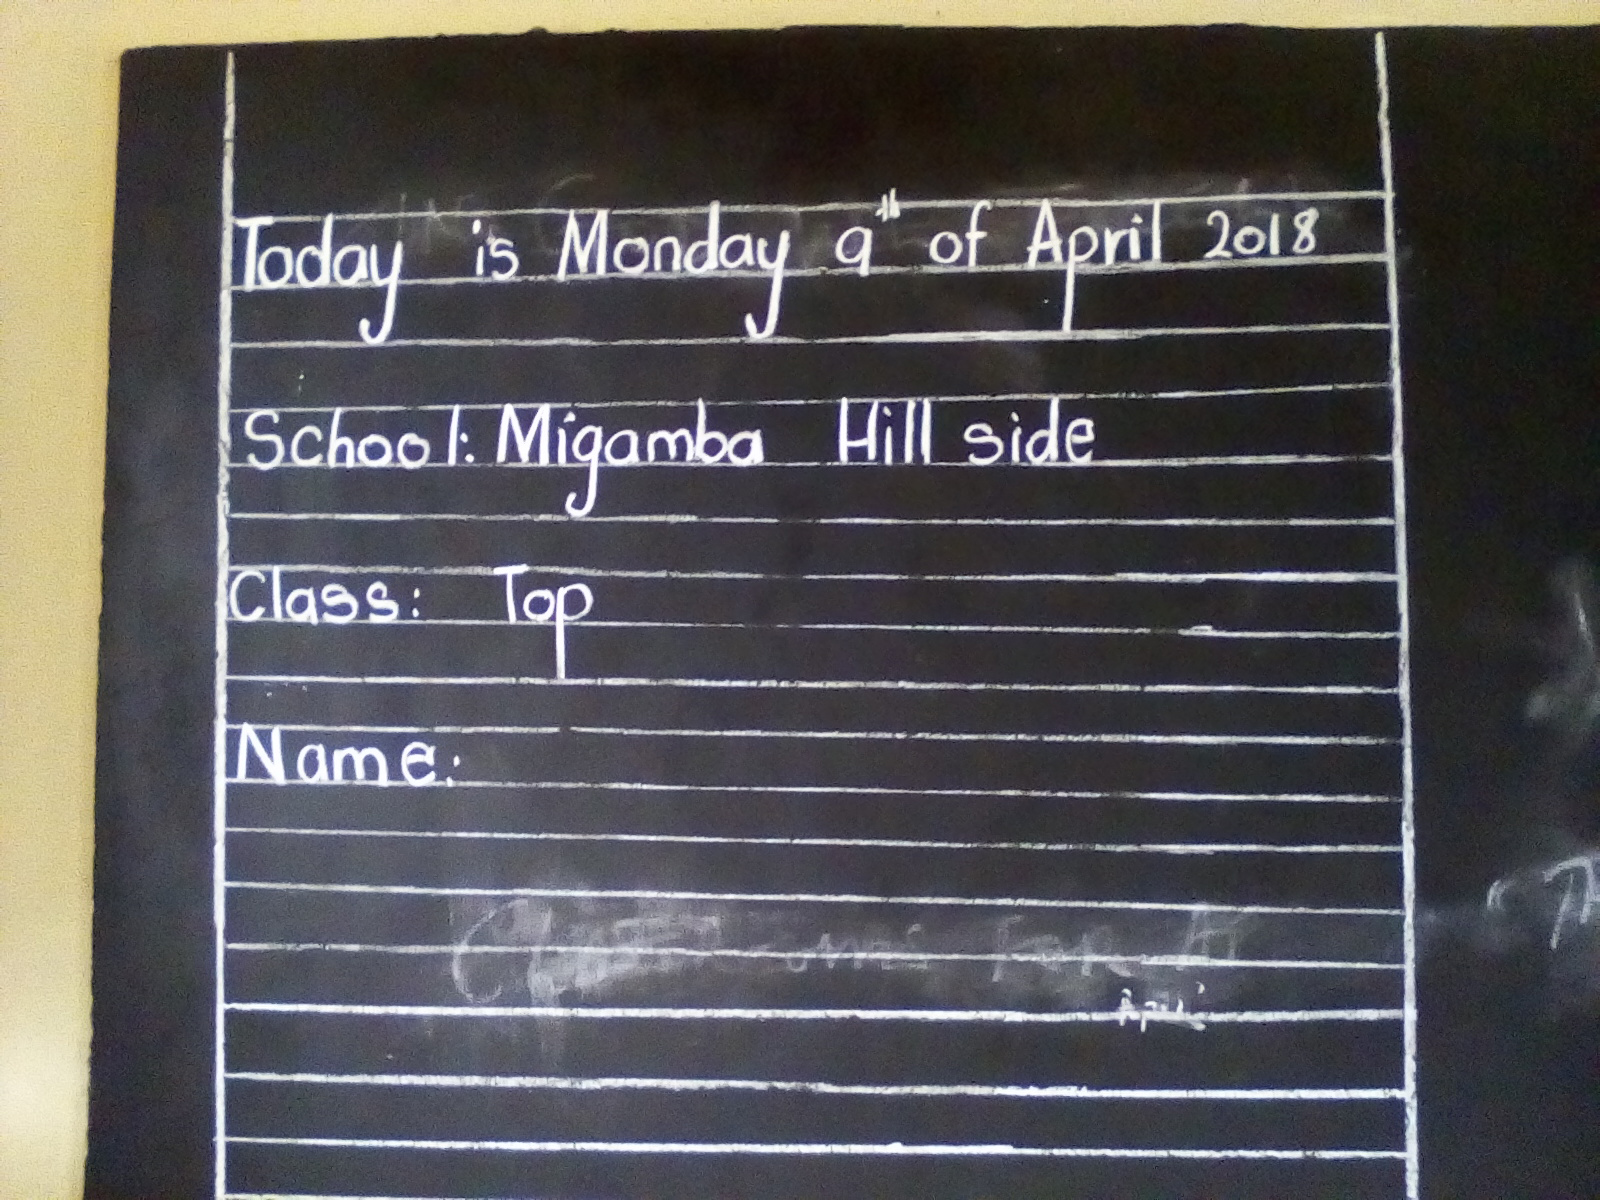 Today is Monday 9th of April 2018
School: Migamba Hill side
Class: Top
Name:
April